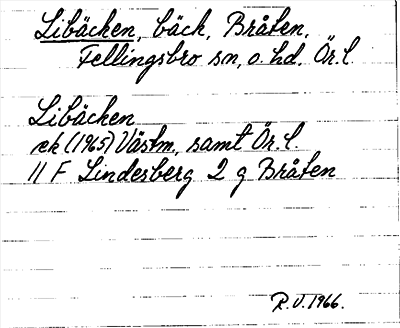 Libäcken, bäck, Bråten,
Fellingsbro sn, o. hd. Ör. l.
Libäcken
ek (1965) Västm, samt Ör. l.
11 F Lindesberg 2 g Bråten
R.V. 1966.